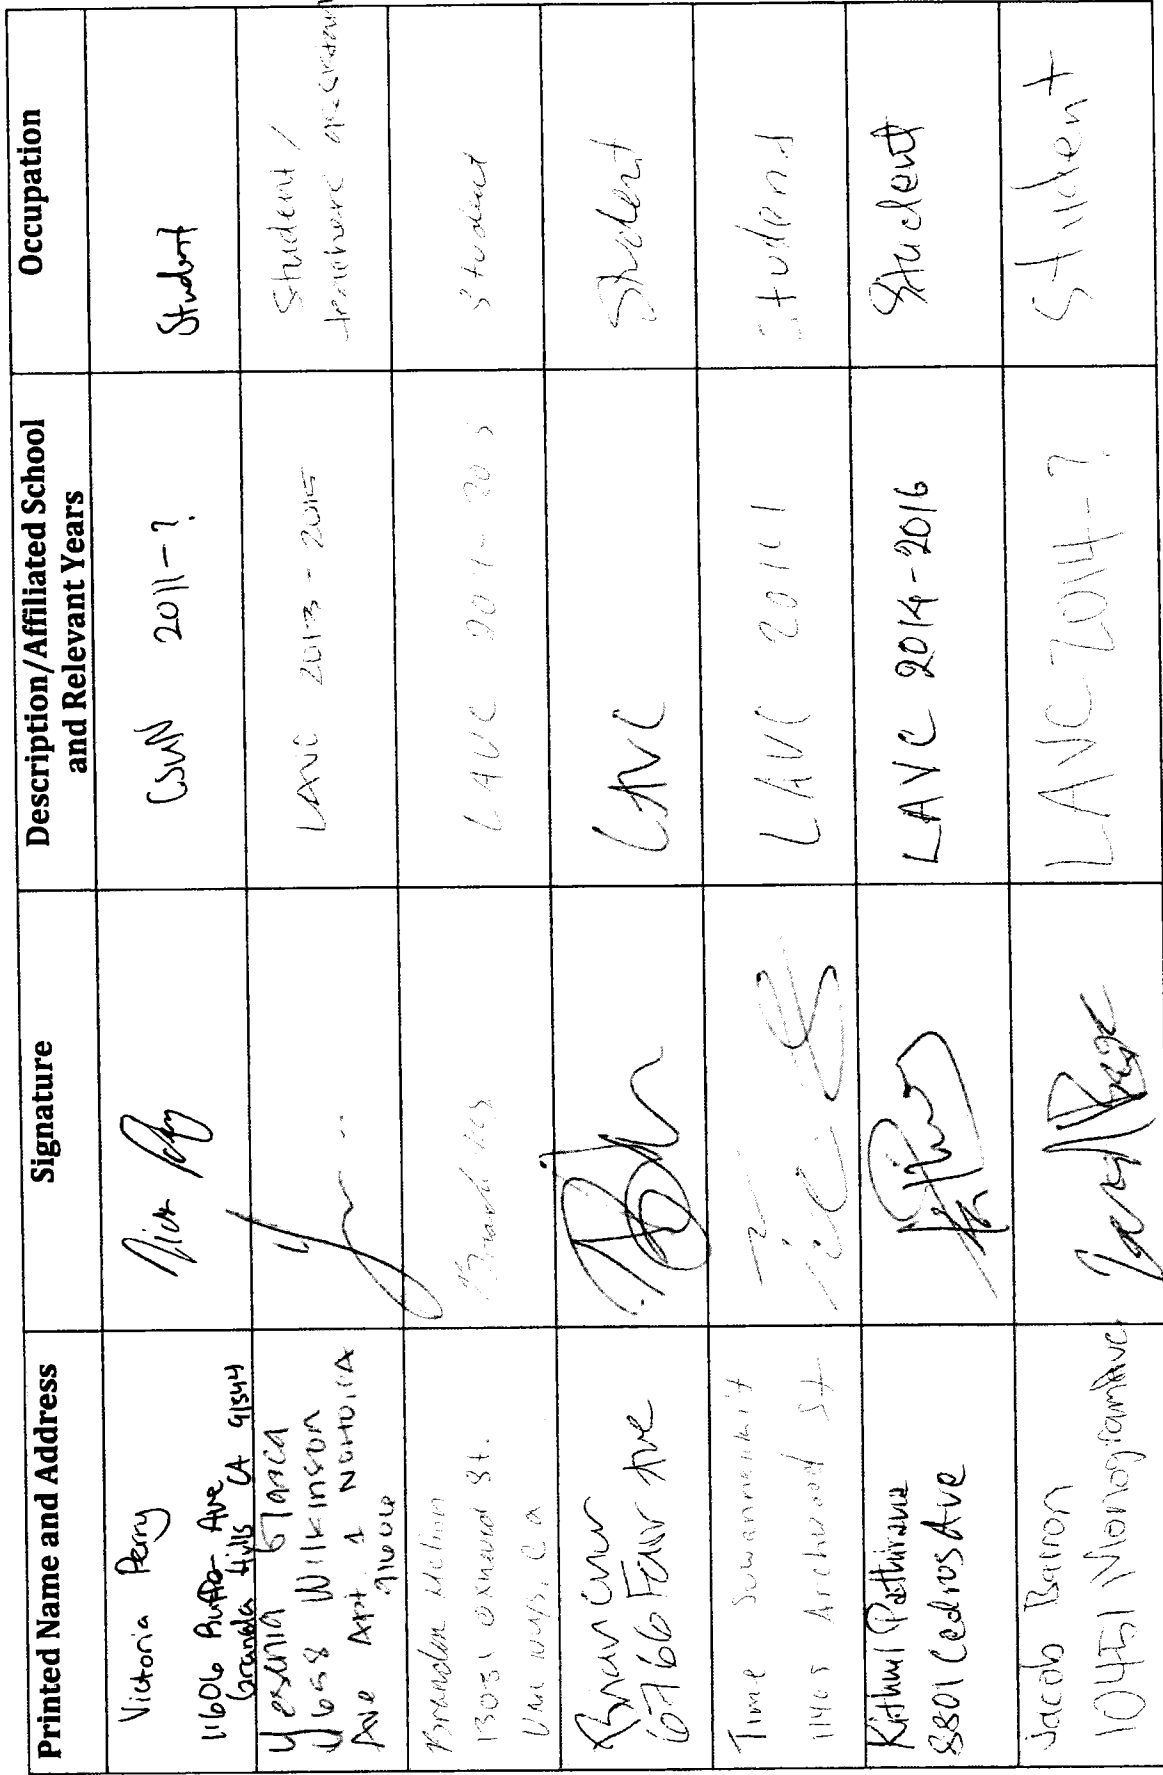 Printed Name and Address
Signature
Description/Affiliated School
and Relevant Years
Occupation
Victoria Perry
11606 Ave
Granada Hills CA 91344
CSUN 2011-?
Student
Yesenia
Wilkinson
Ave Apt 1 NOHO, CA
91606
LAVC 2013 - 2015
Student /
Brandon
13031 Oxnard St.
Van Nuys, Ca
LAVC
Student
Brian
6766 Fair Ave
LAVC
Student
Time Suwannankit
Archwood St
LAVC 2011
Student
Kithmi Pathirana
8801 Cedros Ave
LAVC 2014-2016
Student
Jacob Barron
10451 Monogram Ave
LAVC 2014-?
Student